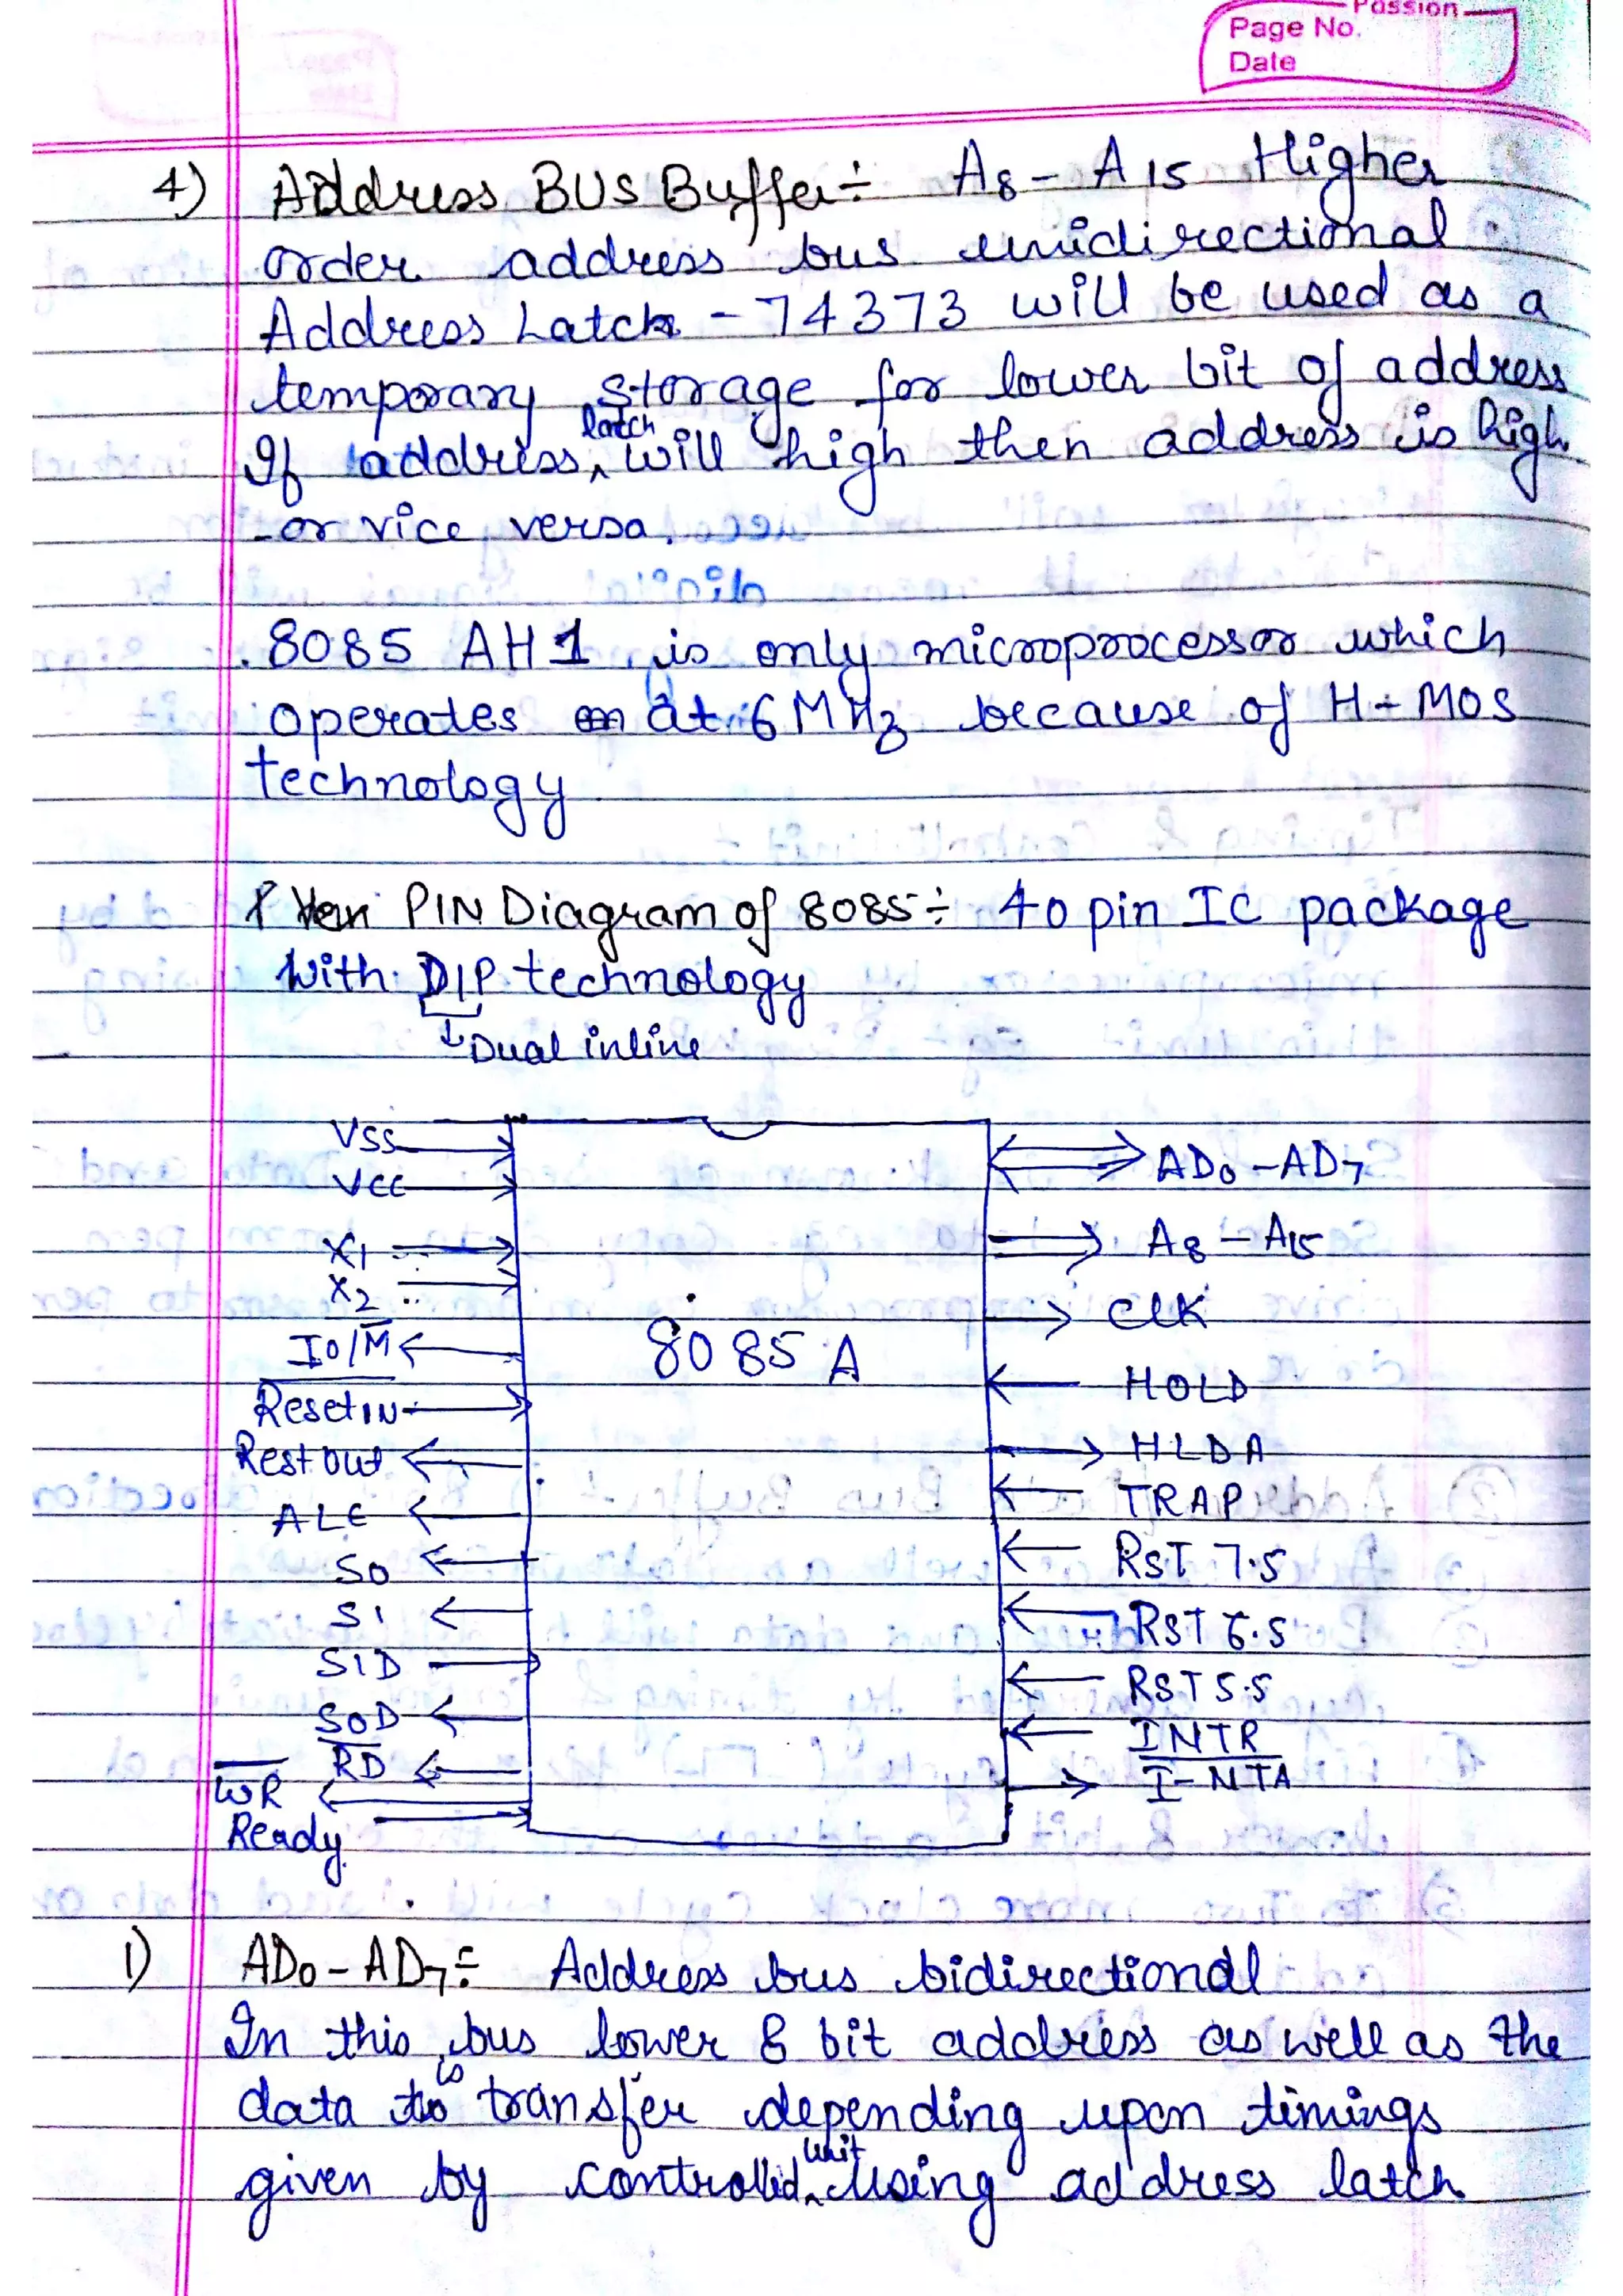 Passion
Page No.
Date
4) Address BUS Buffer ÷ A8 - A15 Higher
order address bus unidirectional
Address Latch - 74373 will be used as a
temporary storage for lower bit of address
If address latch will high then address is high
or vice versa.
8085 AH1 is only microprocessor which
operates at 6 MHz because of H-MOS
technology
PIN Diagram of 8085 ÷ 40 pin IC package
With DIP technology
↓ Dual inline
VSS
VCC
X1
X2
IO/M̅
R̅e̅s̅e̅t̅ I̅N̅
Rest out
ALE
S0
S1
SID
SOD
R̅D̅
W̅R̅
Ready
8085 A
AD0 - AD7
A8 - A15
CLK
HOLD
HLDA
TRAP
RST 7.5
RST 6.5
RST 5.5
INTR
I̅-̅N̅T̅A̅
1) AD0 - AD7 ÷ Address bus bidirectional
In this bus lower 8 bit address as well as the
data is transfer depending upon timings
given by controlled unit using address latch